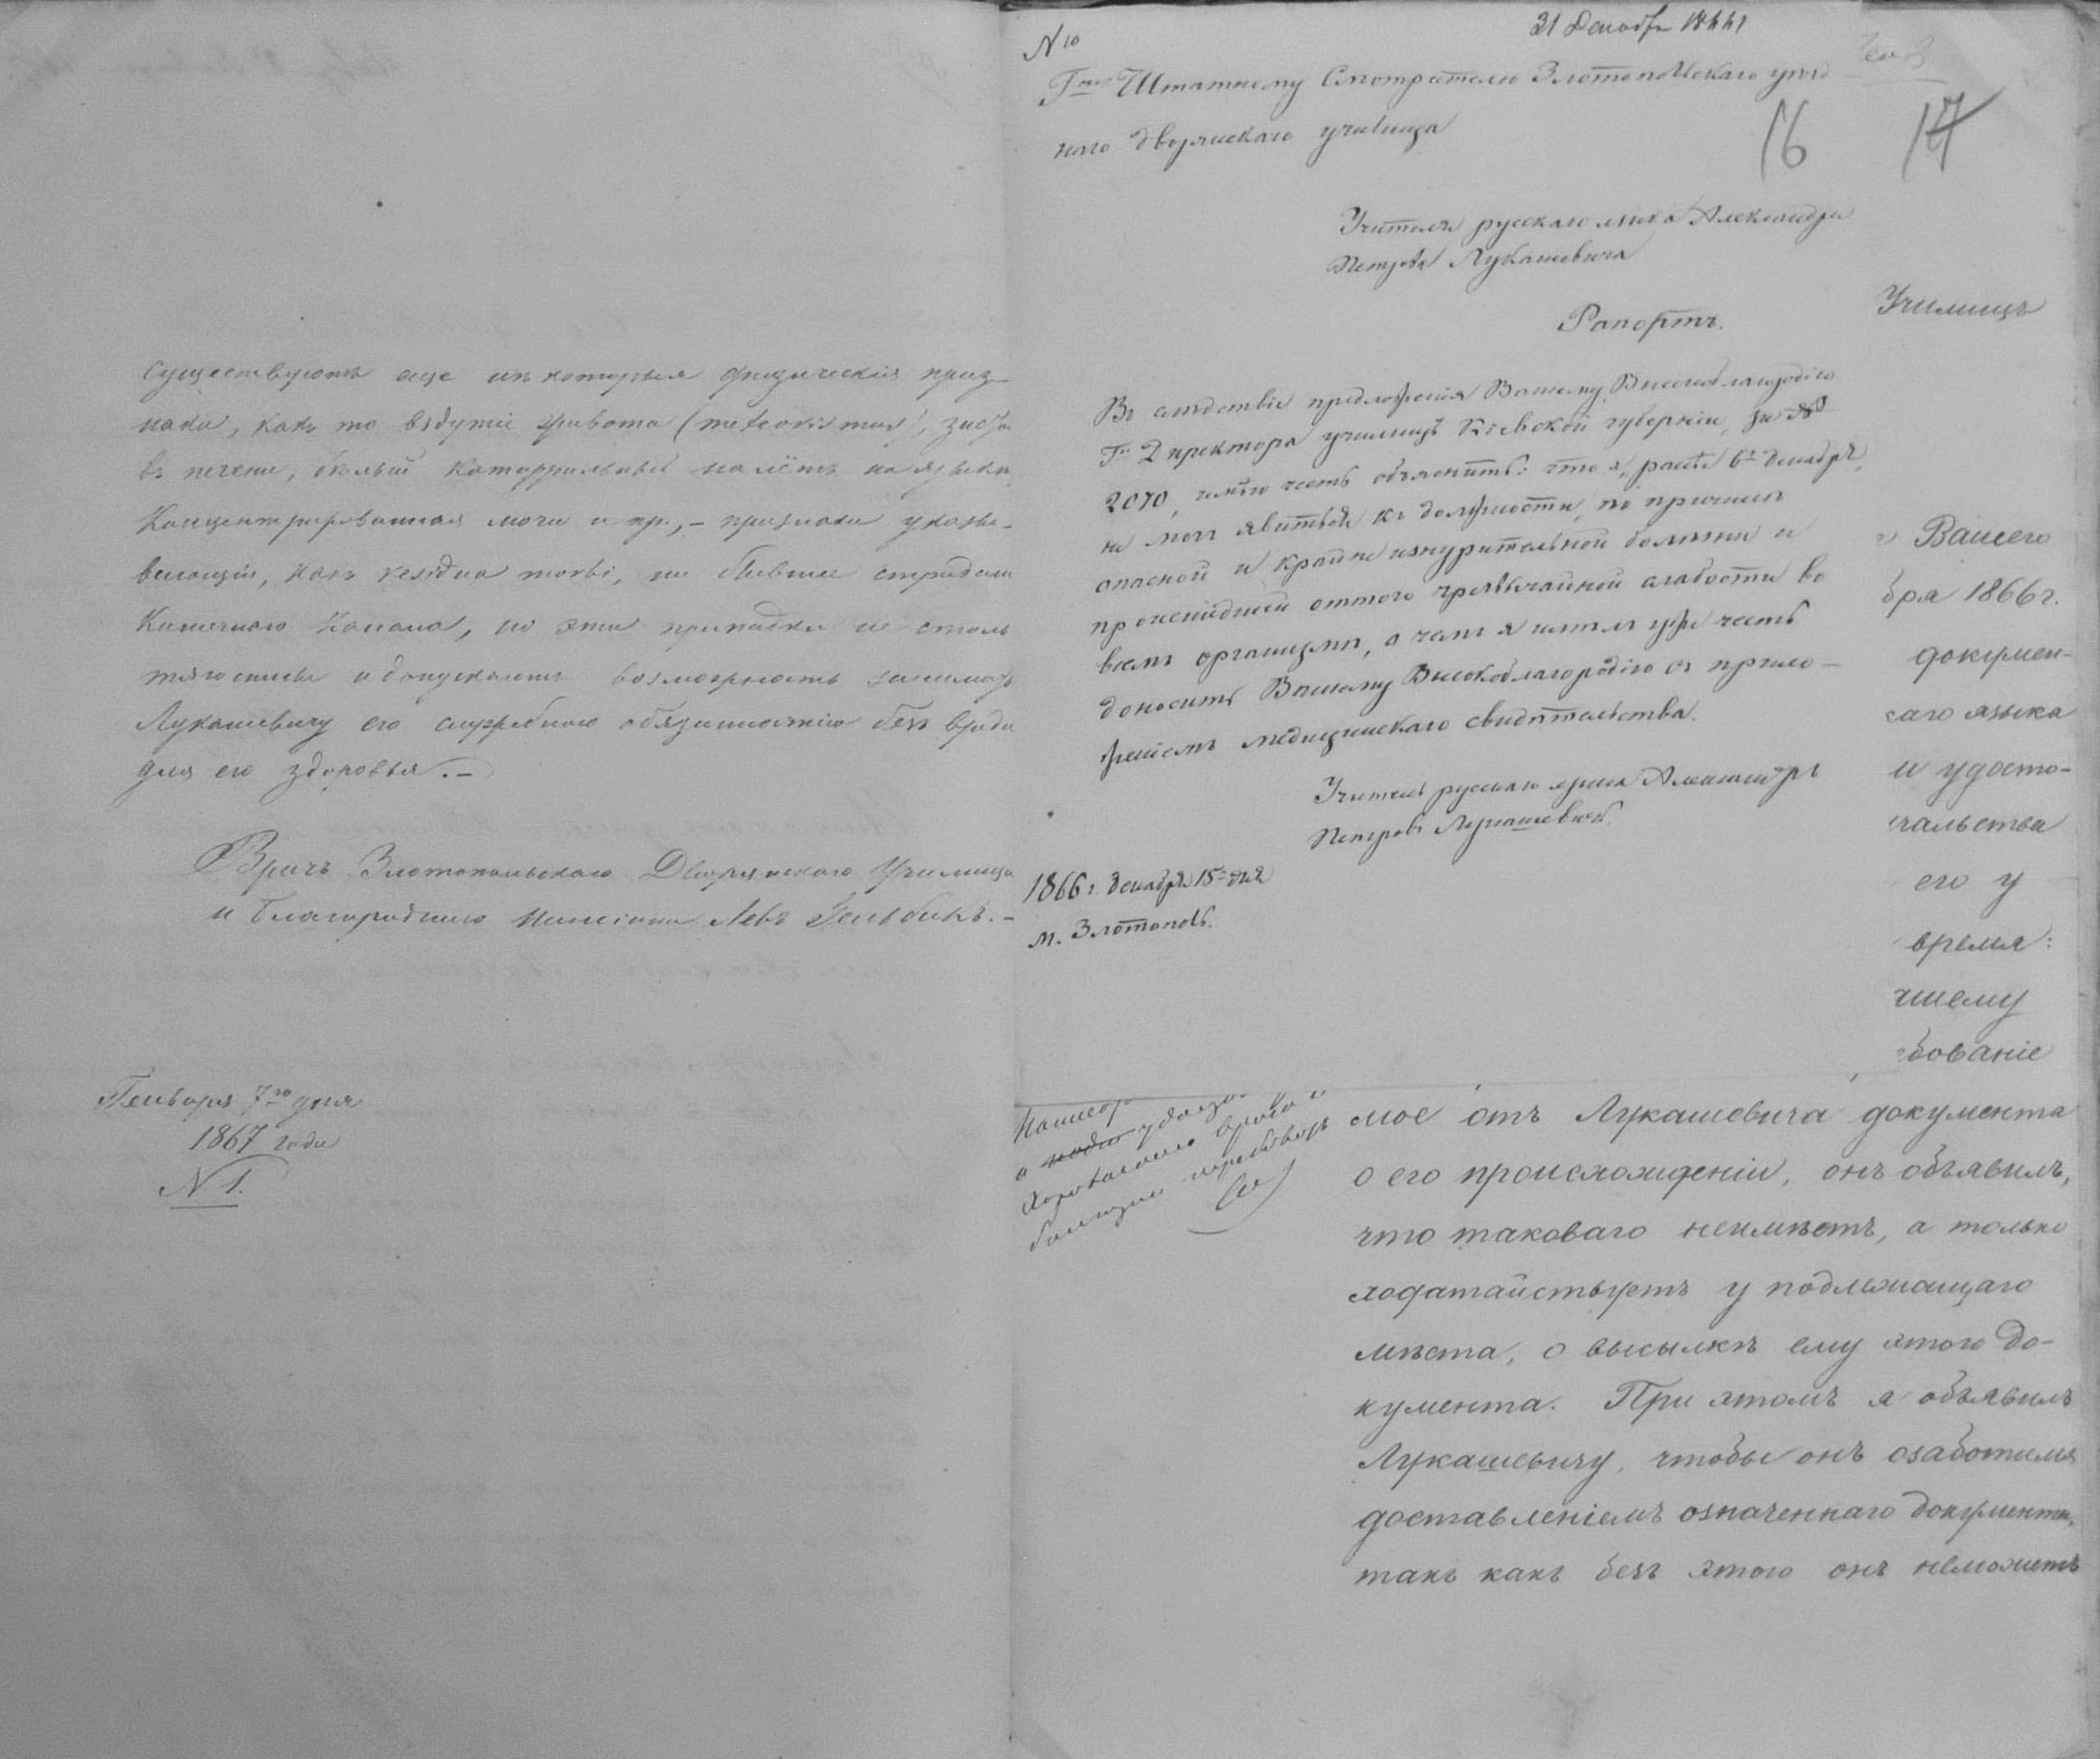 существуютъ еще нѣкоторыя физическія приз-
наки, какъ то вздутіе живота (meteorismus),
въ печени, бѣлый катарральный налётъ на языкѣ,
концентрированная моча и пр., – признаки указы-
вающія, какъ residua morbi, на бывшее страданіе
кишечнаго канала, но эти припадки не столь
тягостны и допускаютъ возможность занимать
Лукашевичу его служебною обязанностію безъ вреда
для его здоровья. –
Врачъ Златопольскаго Дворянскаго Училища
и благороднаго пансіона Левъ
Генваря 7го дня
1867 года
N 1.
N 10
31 Декабря 1866
Гну Штатному Смотрителю Златопольскаго уѣзд
наго дворянскаго училища
16 17
Учителя русскаго языка Александра
Петрова Лукашевича
Рапортъ.
Въ слѣдствіе предложенія Вашему Высокоблагородію
Гна Директора училищъ Кіевской губерніи, за №
2070, имѣю честь объяснить: что я, ранѣе 6го декабря,
не могъ явиться къ должности, по причинѣ
опасной и крайне изнурительной болѣзни и
происшедшей оттого чрезвычайной слабости во
всемъ организмѣ, о чемъ я имѣлъ уже честь
доносить Вашему Высокоблагородію съ прило-
женіемъ медицинскаго свидѣтельства.
Учитель русскаго языка Александръ
Петровъ Лукашевичъ.
1866 г. декабря 15го дня
м. Златополь.
Училищъ
Вашего
бря 1866 г.
докумен-
саго языка
и удосто-
чальства
его у
время:
чшему
бованіе
мое отъ Лукашевича документа
о его происхожденіи, онъ объявилъ,
что таковаго неимѣетъ, а только
ходатайствуетъ у подлежащаго
мѣста, о высылкѣ ему этого до-
кумента. При этомъ я объявилъ
Лукашевичу, чтобы онъ озаботился
доставленіемъ означеннаго документа,
такъ какъ безъ этого онъ неможетъ